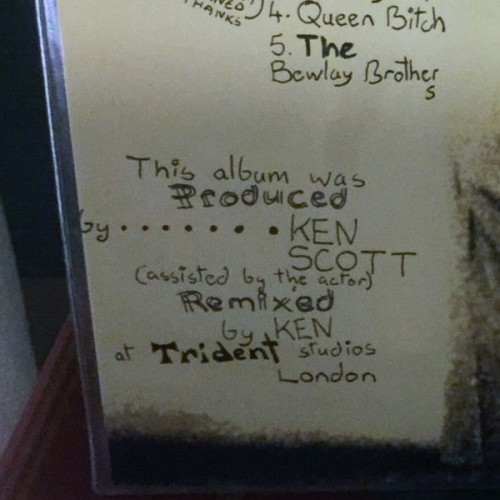 THANKS
4. Queen Bitch
5. The
Bewlay Brother
s
This album was
Produced
by ....... KEN
SCOTT
(assisted by the actor)
Remixed
by KEN
at Trident studios
London